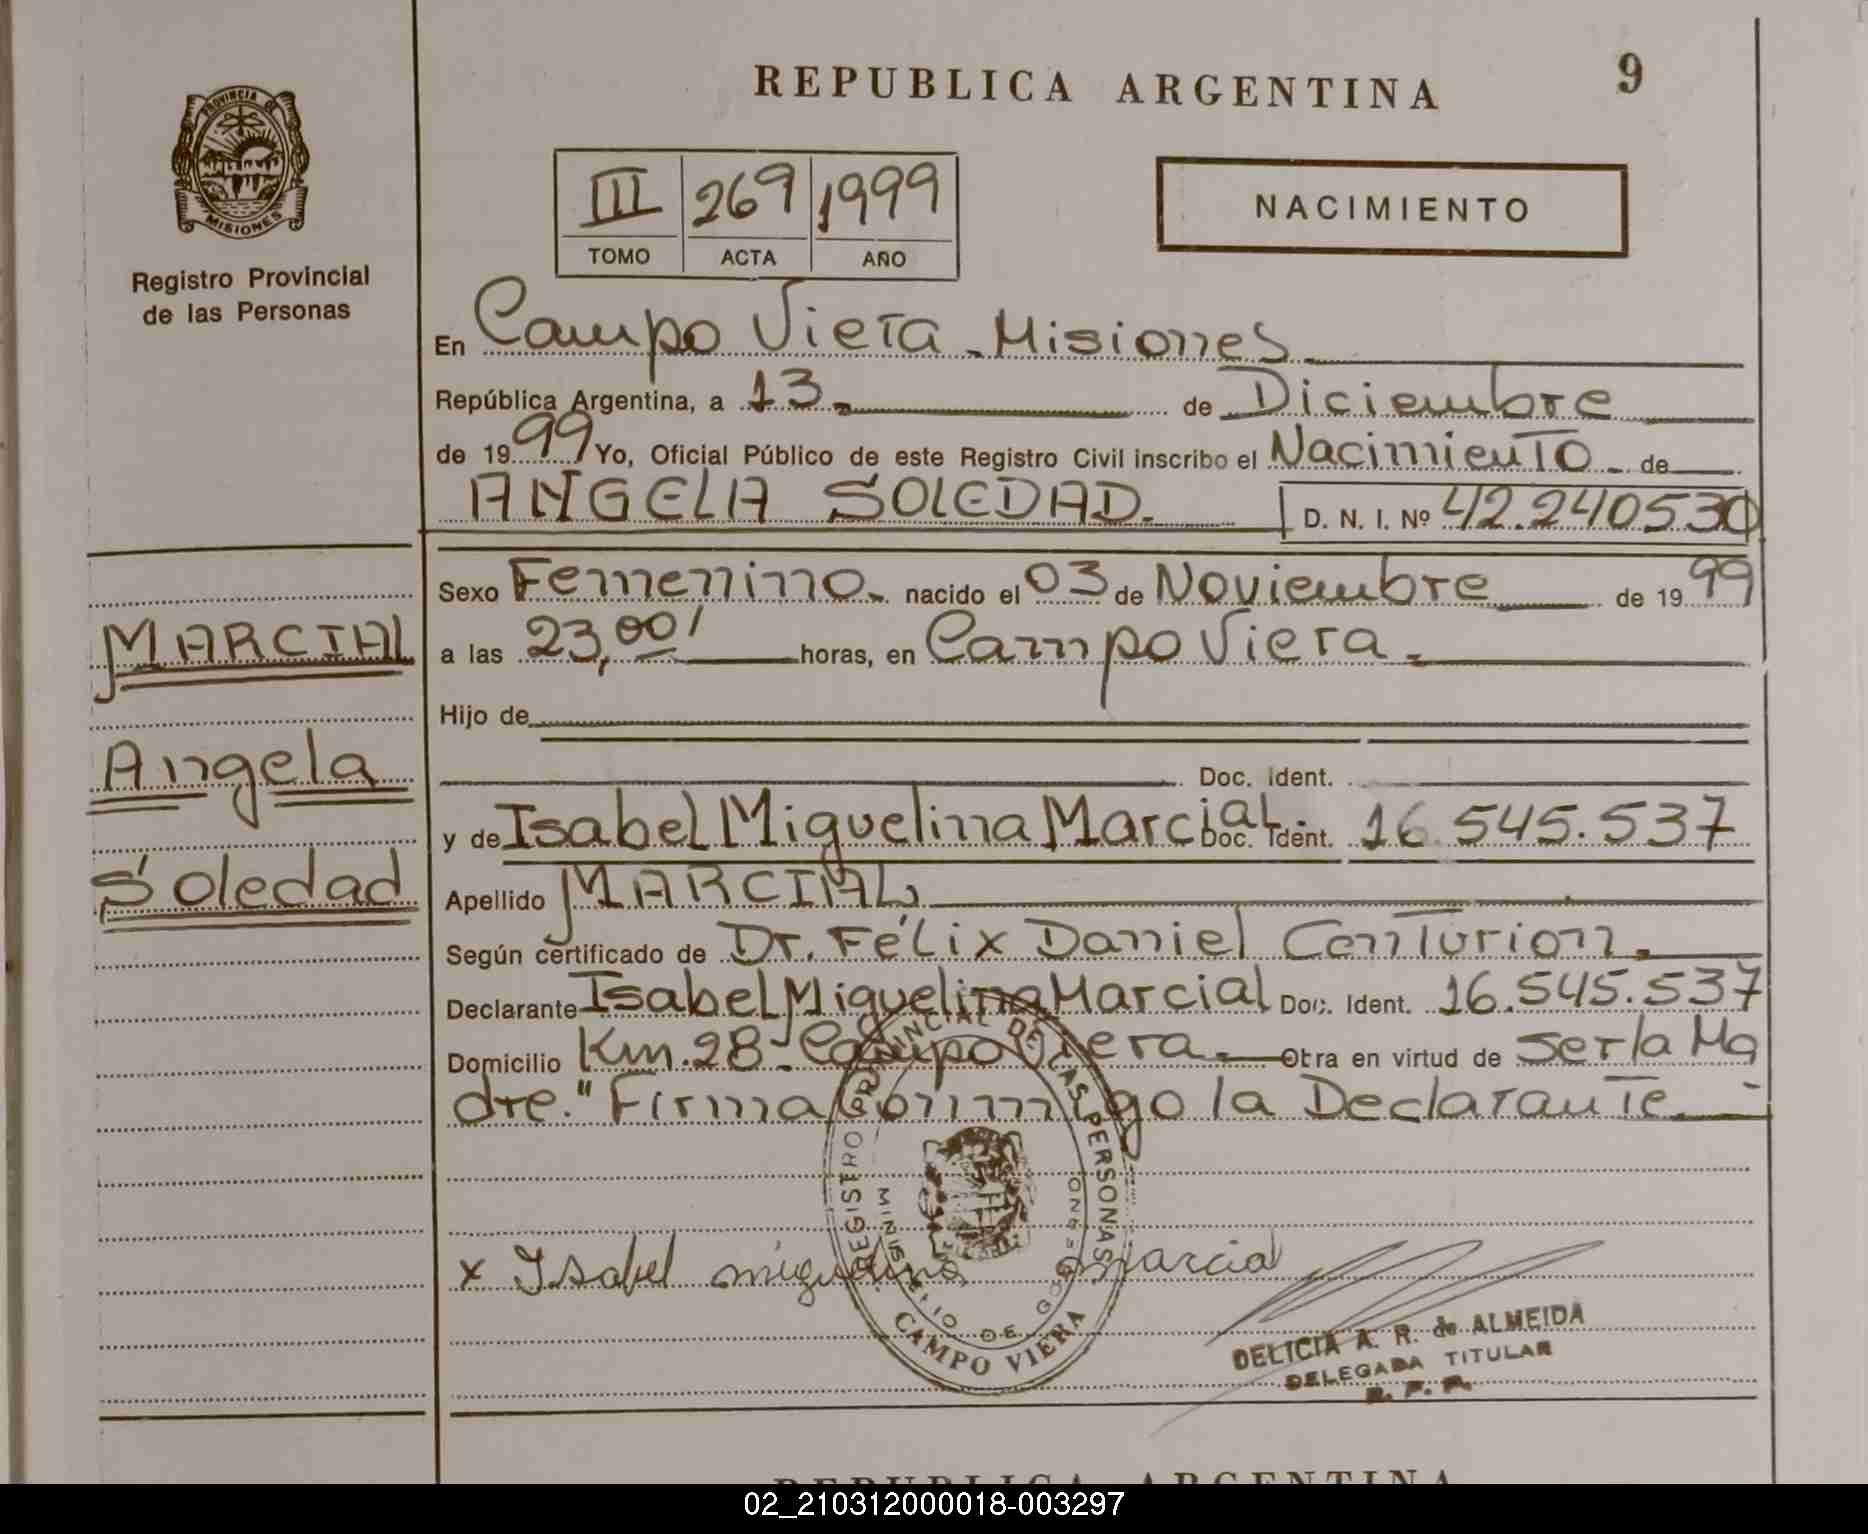 REPUBLICA ARGENTINA
9
PROVINCIA DE
MISIONES
Registro Provincial
de las Personas
III 269 1999
TOMO ACTA AÑO
NACIMIENTO
En Campo Viera - Misiones
República Argentina, a 13 de Diciembre
de 1999 Yo, Oficial Público de este Registro Civil inscribo el Nacimiento de
ANGELA SOLEDAD. D. N. I. Nº 42.240530
Sexo Femenino. nacido el 03 de Noviembre de 1999
a las 23,00' horas, en Campo Viera.
Hijo de
Doc. Ident.
y de Isabel Miguelina Marcial Doc. Ident. 16.545.537
Apellido MARCIAL
Según certificado de Dr. Félix Daniel Centurion.
Declarante Isabel Miguelina Marcial Doc. Ident. 16.545.537
Domicilio Km. 28 - Campo Viera. Obra en virtud de ser la Ma
dre." Firma conmigo la Declarante. -
MARCIAL
Angela
Soledad
REGISTRO PROVINCIAL DE LAS PERSONAS
MINISTERIO DE GOB
CAMPO VIERA
x Isabel miguelina marcial
DELICIA A. R. de ALMEIDA
DELEGADA TITULAR
R. P. P.
REPUBLICA ARGENTINA
02_210312000018-003297